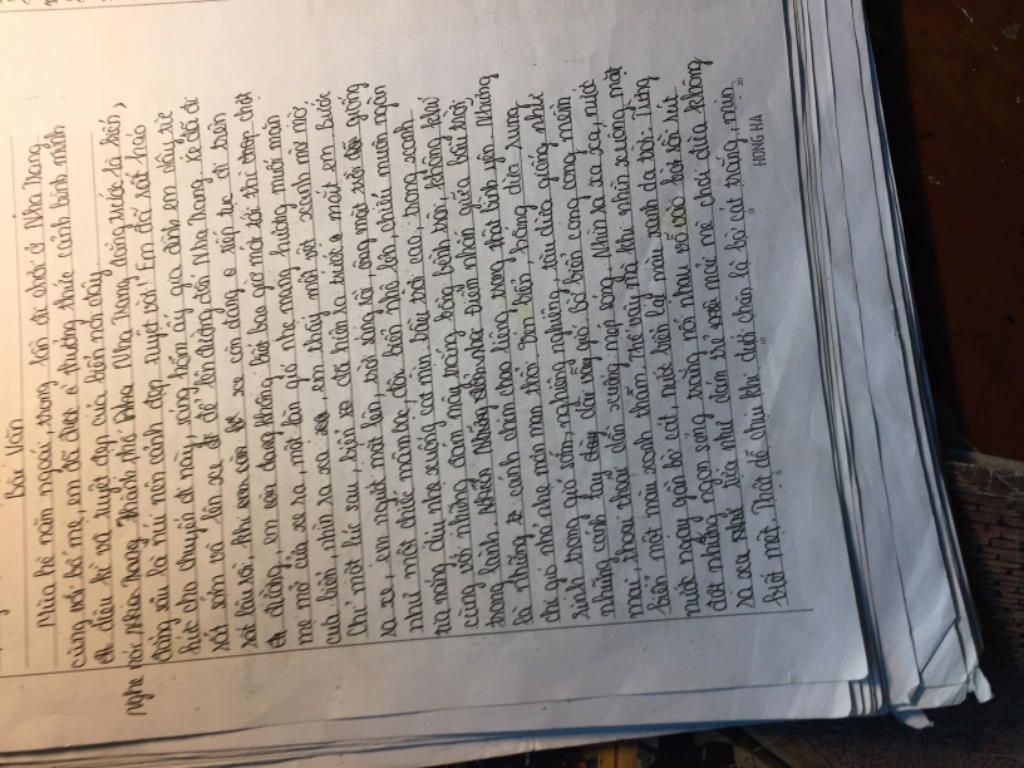 Bài Văn
Mùa hè năm ngoái, trong lần đi chơi ở Nha Trang
cùng với bố mẹ, em đã được thưởng thức cảnh bình minh
diệu kì và tuyệt đẹp của biển nơi đây.
Nghe nói Nha Trang thành phố Nha Trang, trông trước là biển,
đằng sau là núi nên cảnh đẹp tuyệt vời! Em đã rất háo
hức cho chuyến đi này, sáng hôm ấy gia đình em dậy từ
rất sớm và lên xe để lên đường đến Nha Trang. Xe đã đi
rất lâu rồi. Khi xe còn đang tiếp tục đi trên
đường, em vẫn đang không biết bao giờ mới tới thì chợt
mẹ mở cửa xe ra, một làn gió nhẹ mang hương muối mằn
của biển, nhìn ra xa, em thấy một vệt xanh mờ mờ.
Chỉ một lúc sau, biển đã hiện ra trước mắt em. Bước
ra xe, em ngước mặt lên, trời sáng rồi, ông mặt trời giống
như một chiếc mâm bạc, đội biển nhô lên, chiếu muôn ngàn
tia nắng dịu nhẹ xuống cát mịn. Bầu trời cao, trong xanh
cùng với những đám mây trắng bồng bềnh trôi, không khí
trong lành, Những nhạc điểm nhấn giữa bầu trời
là những cánh chim chao liệng trong thật bình yên. Những
cơn gió nhè nhẹ mơn man thổi, trên bờ biển hàng dừa rung
rinh trong gió sớm, nghiêng nghiêng, tàu dừa giống như
những cánh tay dài vẫy gió! Bờ biển cong cong mềm
mại, thoai thoải dần xuống mép sóng. Nhìn ra xa xa, nước
biển một màu xanh thẳm. Thế vậy mà khi nhìn xuống mặt
nước ngay gần bờ cát, nước biển lại màu xanh da trời. Từng
đợt những ngọn sóng trắng nối nhau vỗ vào bờ rồi rút
ra xa như đám trẻ mải mê chơi đùa không
biết mệt. Thật dễ chịu khi dưới chân là bờ cát trắng, mịn
HONG HA
5
10
15
20